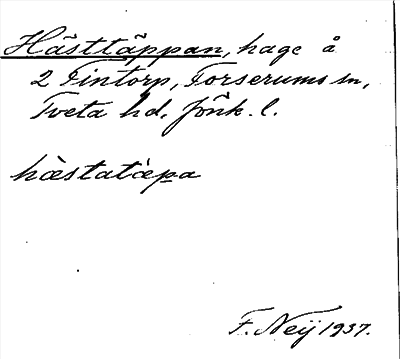 Hästtäppan, hage å
2 Fintorp, Forserums sn,
Tveta hd, Jönk. l.
hæ̀statæ̀p̲a
F. Neij 1937.